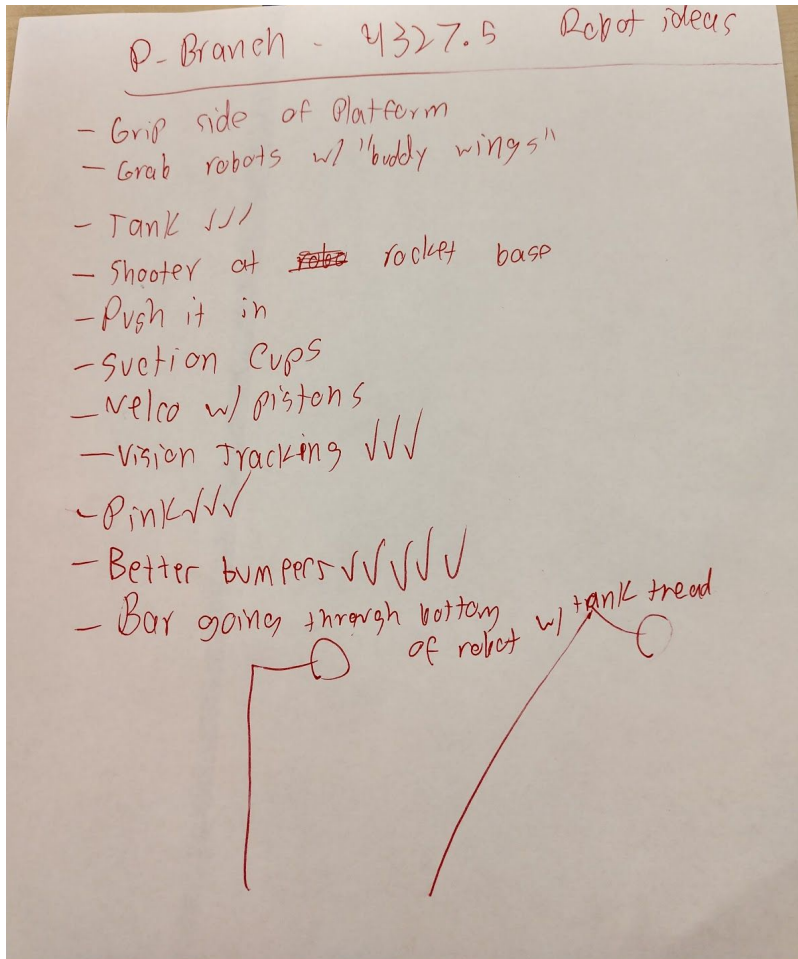 P-Branch - 4327.5 Robot ideas
- Grip side of Platform
- Grab robots w/ "buddy wings"
- Tank ✓✓✓
- Shooter at rocket base
- Push it in
- Suction Cups
- Velco w/ pistons
- Vision Tracking ✓✓✓
- Pink ✓✓✓
- Better bumpers ✓✓✓✓✓
- Bar going through bottom
of robot w/ tank tread